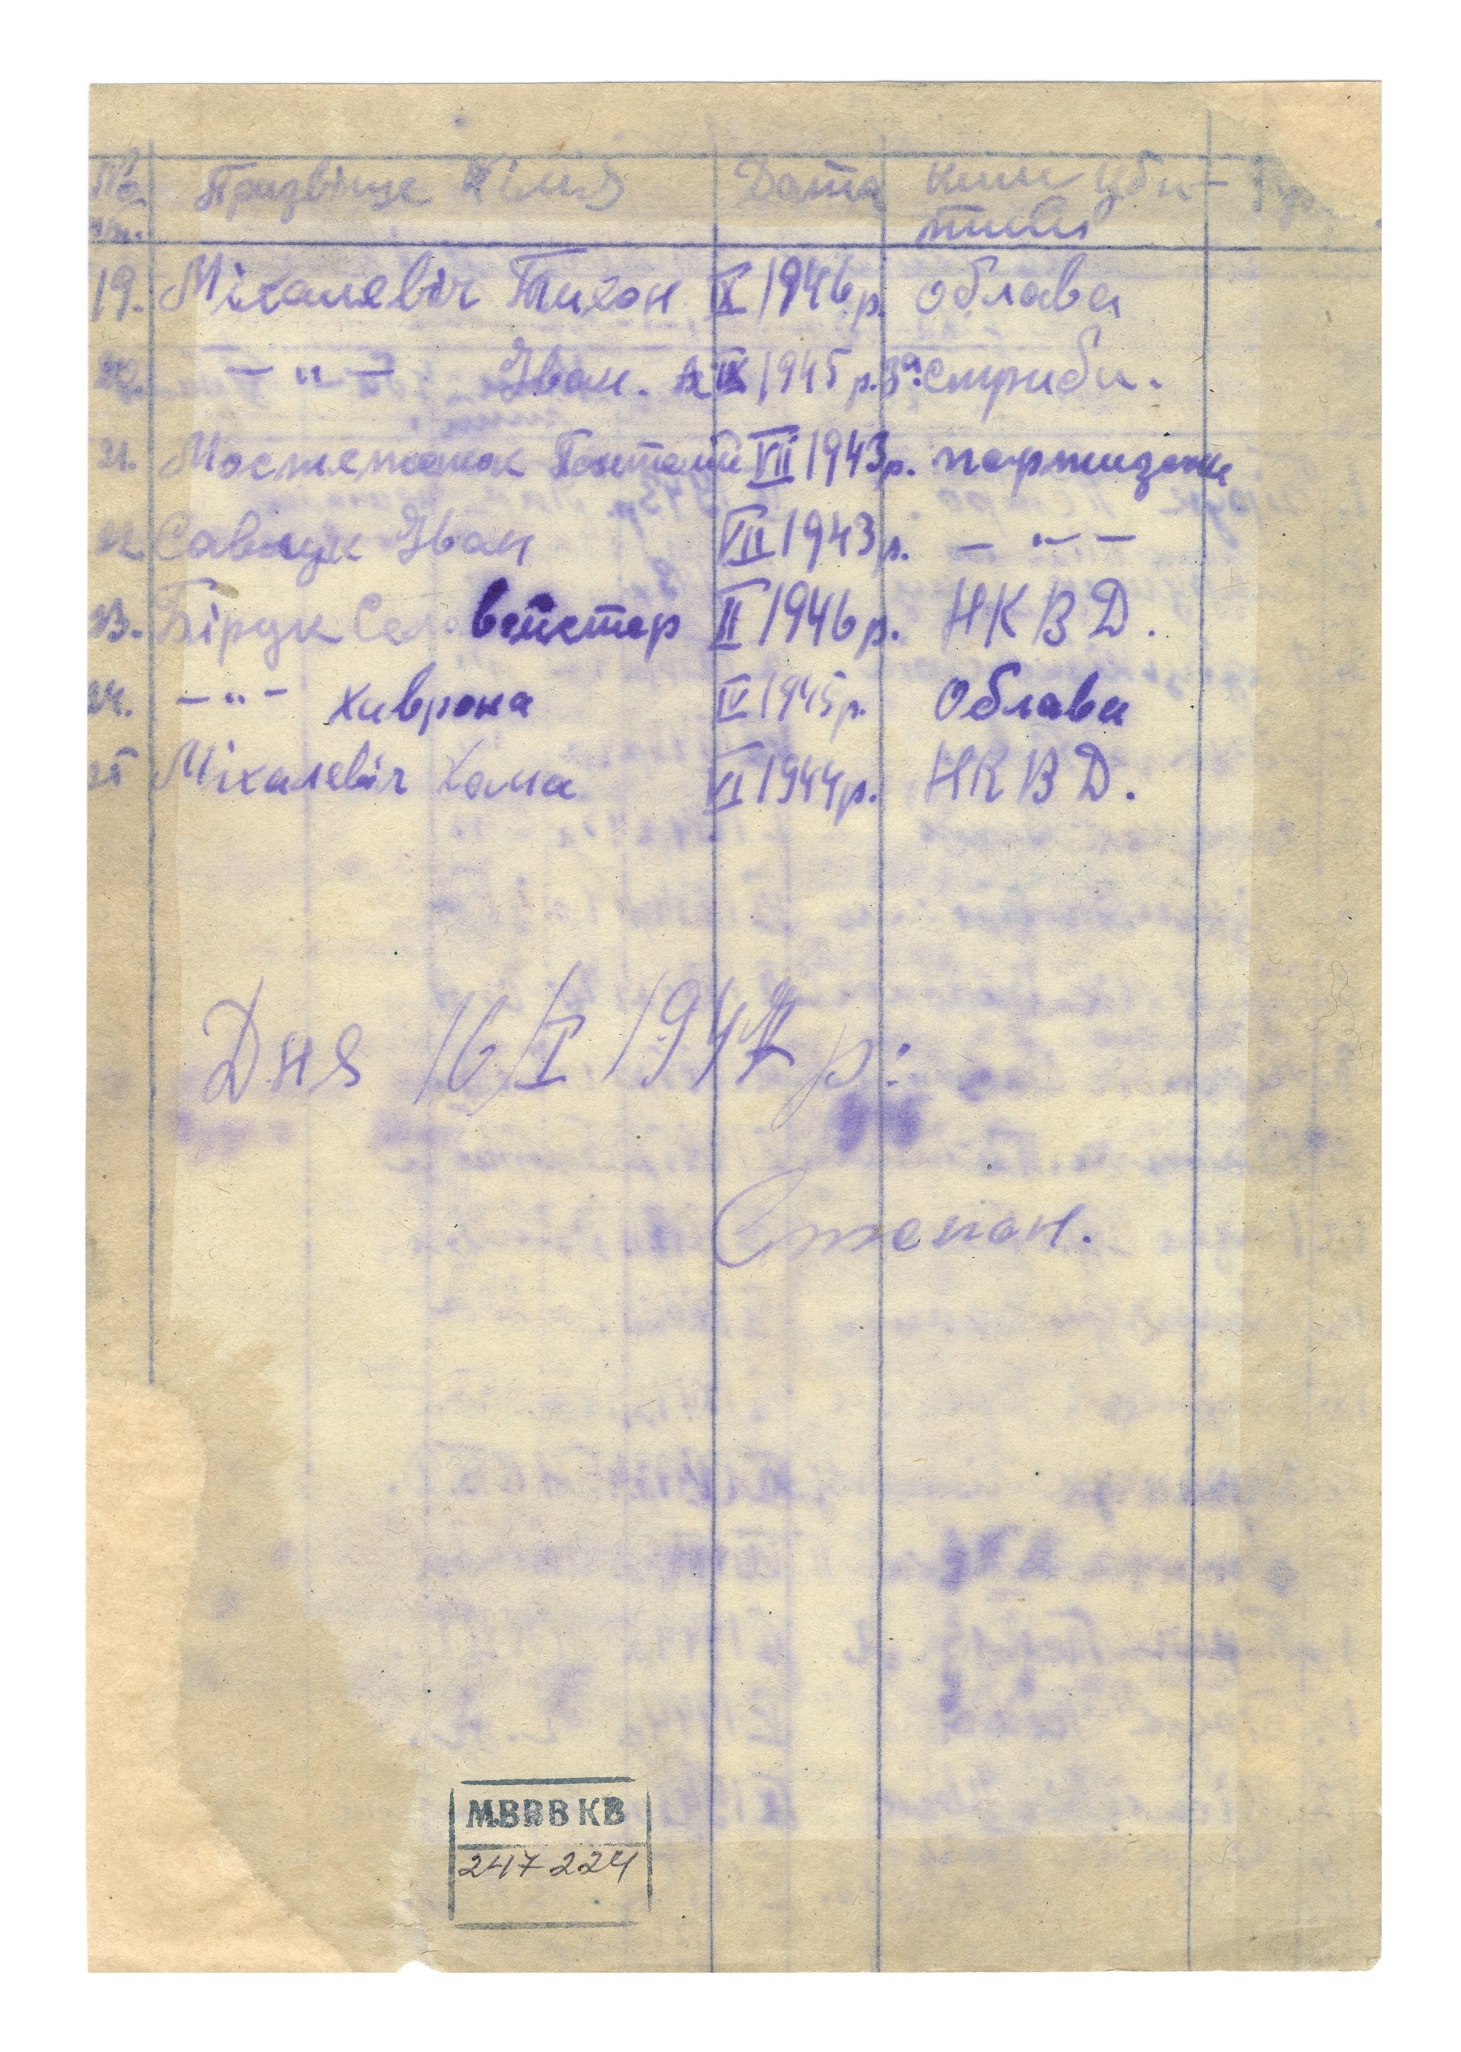 По Прізвіще і імя Дата Ким уби-
тий
19. Міхалевіч Тихон IX 1946 р. облава
20. — " — Іван. IX 1945 р. стриби.
21. Пантелій VII 1943 р. партизани
22. Савчук Іван VII 1943 р. — " —
23. Бірук Селівейстер II 1946 р. НКВД.
24. — " — Хиврона IV 1945 р. Облава
25 Міхалевіч Хома VI 1944 р. НКВД.
Дня 16/I 1947 р:
Степан.
МВВВ КВ
247224